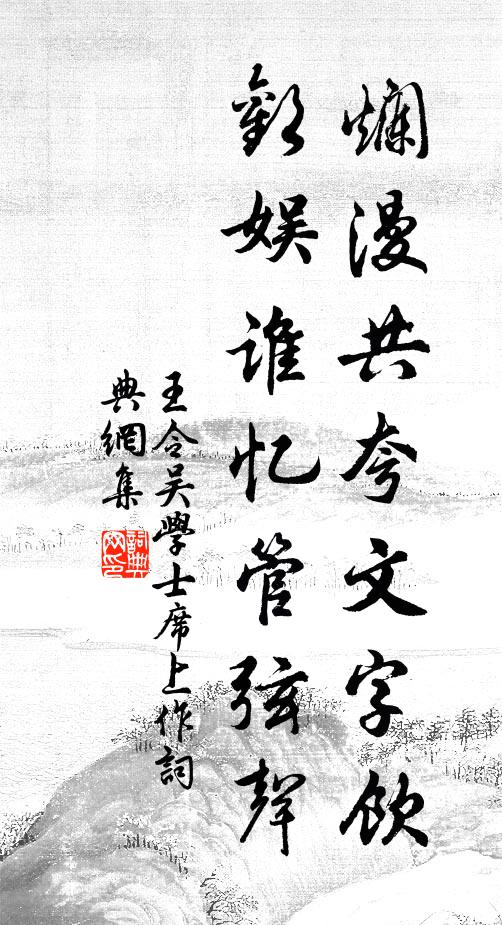 爛漫共夸文字飲
歡娛誰忆管弦聲
王令吴學士席上作詞
典網集
詞典網印